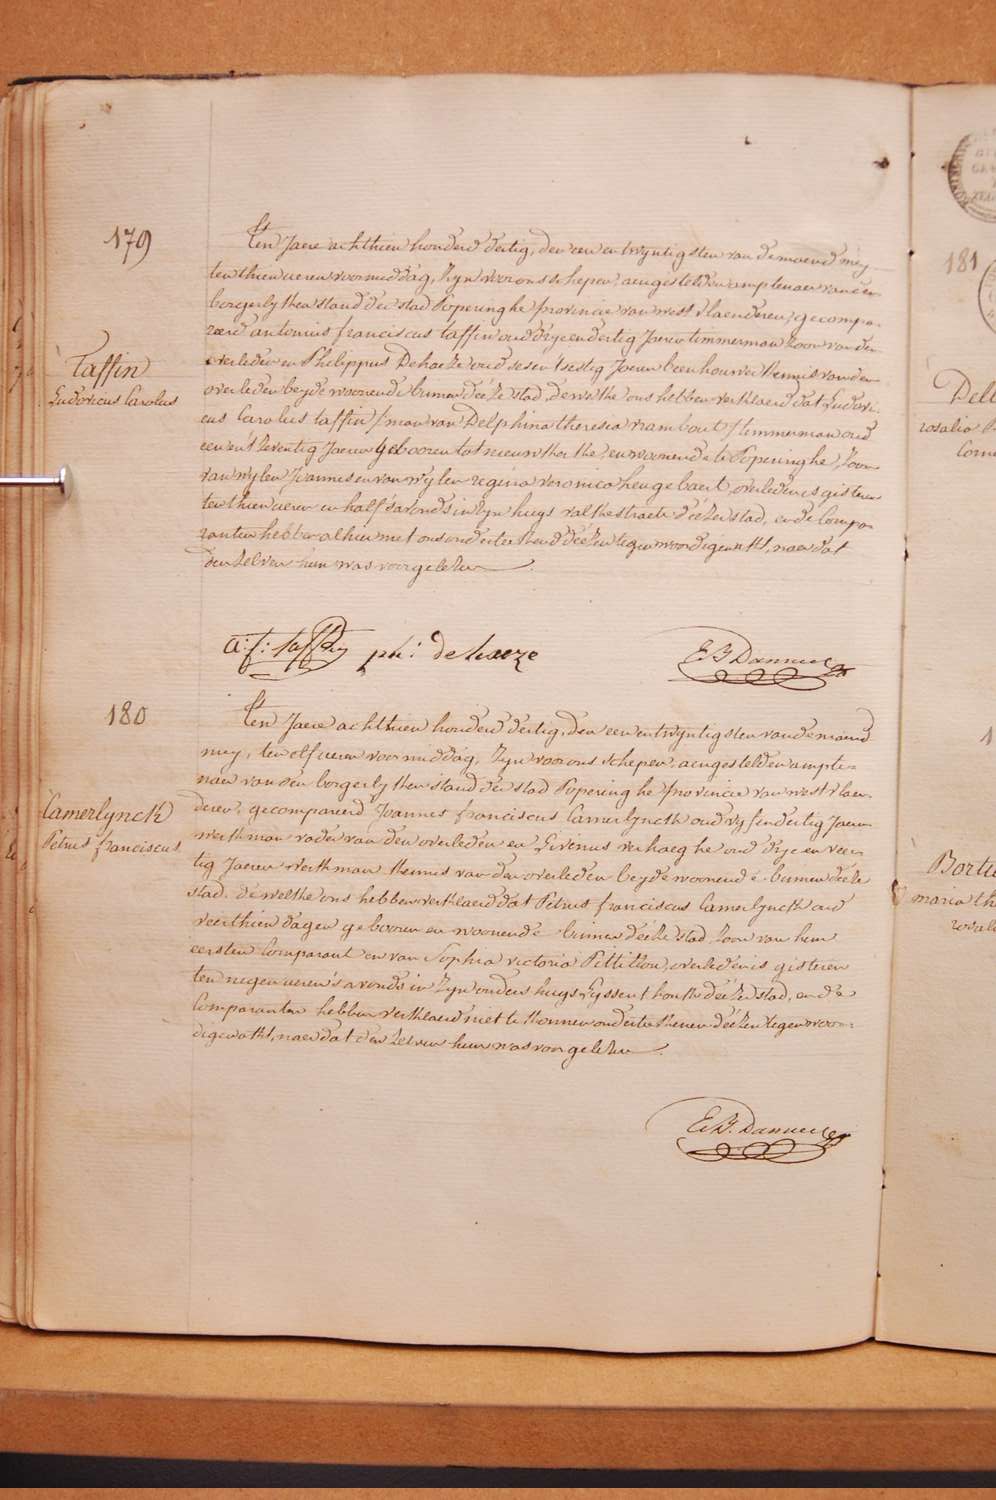 179
Taffin
Ludovicus Carolus
Ten Jaere achthien honderd dertig, den een en twyntigsten van de maend mey
ten thien ueren voormiddag, Zyn voor ons schepen, aengestelden amptenaer van den
borgerlythen stand der stad Poperinghe provincie van westvlaenderen, gecompa-
reerd antonius franciscus taffin oud dryeendertig Jaeren timmerman Zoon van den
overleden en Philippus Dehaeze oud sesen tsestig Jaeren beenhouwer kennis van den
overleden beyde woonende binnen deeze stad, dewelke ons hebben verklaerd dat Ludovi-
cus Carolus taffin man van Delphina theresia rambout timmerman oud
eenen tzeventig Jaeren geboren tot nieuwkerke, en woonende te Poperinghe, Zoon
van wylen Joannes en van wylen regina veronica hengebaert, overleden is gisteren
ten thien ueren en half s'avonds in zyn huys valkestraete deezer stad, en de Compa-
ranten hebben alhier met ons onderteekend deezen tegenwoordigen akt, naer dat
den zelven hun was voorgelezen.
a: f: taffin ph: dehaeze E B Danneel
180
Camerlynck
Petrus franciscus
Ten Jaere achthien honderd dertig, den een en twyntigsten van de maend
mey, ten elf ueren voormiddag, Zyn voor ons schepen, aengestelden ampte=
naer van den borgerlythen stand der stad Poperinghe provincie van westvlaen-
deren, gecompareerd Joannes franciscus Camerlynck oud vyfendertig Jaeren
werkman vader van den overleden en Livinus verhaeghe oud drye en veer-
tig Jaeren werkman kennis van den overleden beyde woonende binnen deeze
stad. dewelke ons hebben verklaerd dat Petrus franciscus Camerlynck oud
veerthien dagen geboren en woonende binnen deeze stad, Zoon van hun
eersten Comparant en van Sophia victoria Pettillon, overleden is gisteren
ten negen ueren s'avonds in zyn ouders huys Eyssenthouk deezer stad, en de
Comparanten hebben verklaerd niet te konnen onderteekenen deezen tegenwoor-
digen akt, naer dat den zelven hun was voorgelezen.
E. B. Danneel
181
rosalie
Bortie
maria th